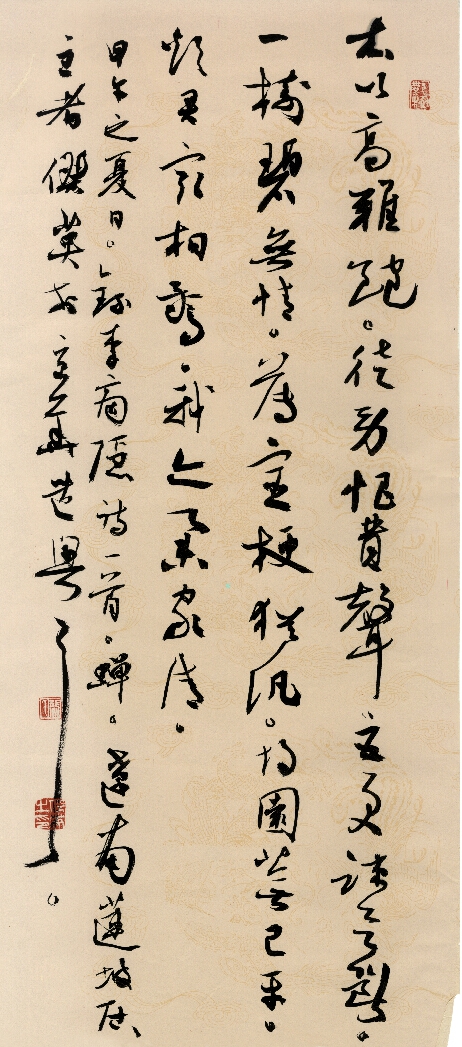 本以高難飽。徒勞恨費聲五更疎欲斷。
一樹碧無情。薄宦梗猶汎。故園蕪已平。
煩君最相警。我亦舉家清。
甲午之夏日。錄李商隱詩一首。蟬。南蓮坡居
主者傑英於